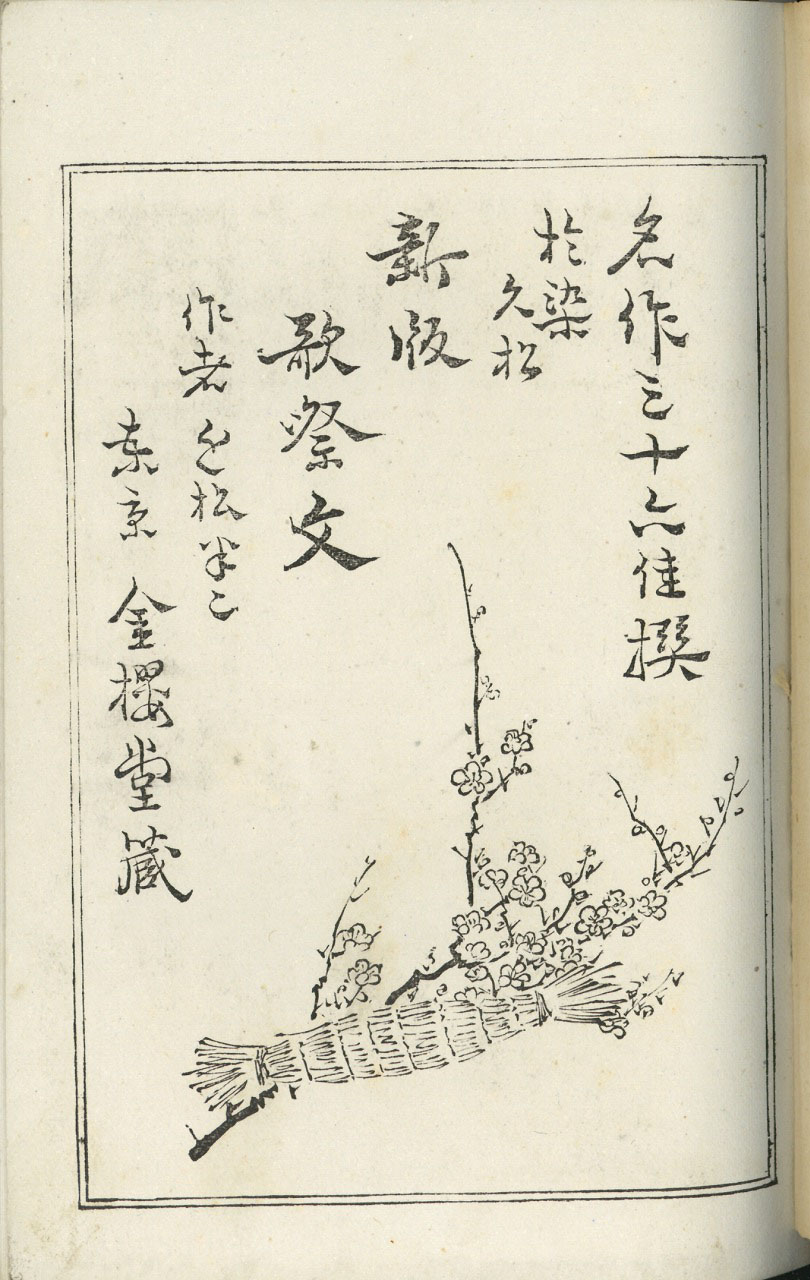 名作三十六佳撰
於染
久松
新版
歌祭文
作者 近松半二
東京 金櫻堂蔵